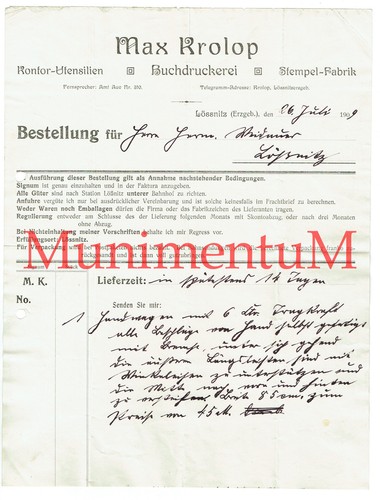 Max Krolop
Kontor-Utensilien Buchdruckerei Stempel-Fabrik
Fernsprecher: Amt Aue Nr. 910. Telegramm-Adresse: Krolop, Lössnitzerzgeb.
Lössnitz (Erzgeb.), den 26 Juli 1909
Bestellung für Herrn Herm.
Lößnitz
Ausführung dieser Bestellung gilt als Annahme nachstehender Bedingungen.
Signum ist genau einzuhalten und in der Faktura anzugeben.
Alle Güter sind nach Station Lößnitz unterer Bahnhof zu richten.
Anfuhre vergüte ich nur bei ausdrücklicher Vereinbarung und ist solche keinesfalls im Frachtbrief zu berechnen.
Weder Waren noch Emballagen dürfen die Firma oder das Fabrikzeichen des Lieferanten tragen.
Regulierung entweder am Schlusse des der Lieferung folgenden Monats mit Skontoabzug, oder nach drei Monaten
ohne Abzug.
Bei Nichteinhaltung meiner Vorschriften erhalte ich mir Regress vor.
Erfüllungsort Lössnitz.
Für Verpackung
MunimentuM
M. K. Lieferzeit: in spätestens 14 Tagen
No. Senden Sie mir:
1 Handwagen mit 6 Ctr. Tragkraft
alle Beschläge von Hand selbst gefertigt
mit Bremse, unter sich gehend
die äußern Langleisten sind mit
Winkeleisen zu unterstützen und
die Mitte nach vorn und hinten
zu Breite 85 cm, zum
Preise von 45 M.